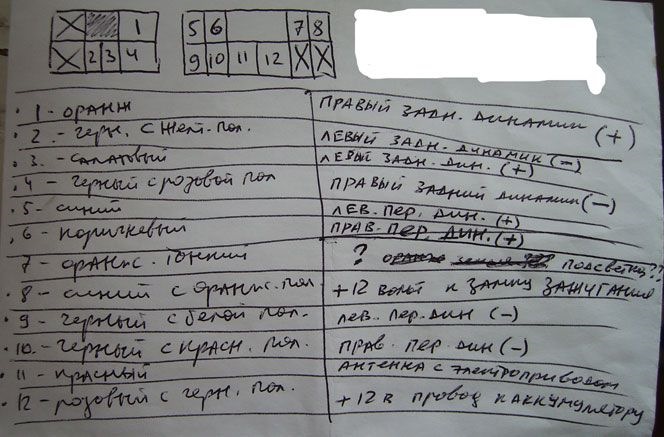 X 1 5 6 7 8
X 2 3 4 9 10 11 12 X X
1 - оранж ПРАВЫЙ ЗАДН. ДИНАМИК (+)
2 - черн. с желт. пол. ЛЕВЫЙ ЗАДН. ДИНАМИК (-)
3 - салатовый ЛЕВЫЙ ЗАДН. ДИН. (+)
4 - черный с розовой пол ПРАВЫЙ ЗАДНИЙ ДИНАМИК (-)
5 - синий ЛЕВ. ПЕР. ДИН. (+)
6 - коричневый ПРАВ. ПЕР. ДИН. (+)
7 - оранж. тонкий ? подсветка??
8 - синий с оранж. пол. +12 вольт к ЗАМКУ ЗАЖИГАНИЯ
9 - черный с белой пол. лев. пер. дин (-)
10. - черный с красн. пол. прав. пер. дин (-)
11 - красный антенна с электроприводом
12 - розовый с черн. пол. +12 в провод к аккумулятору